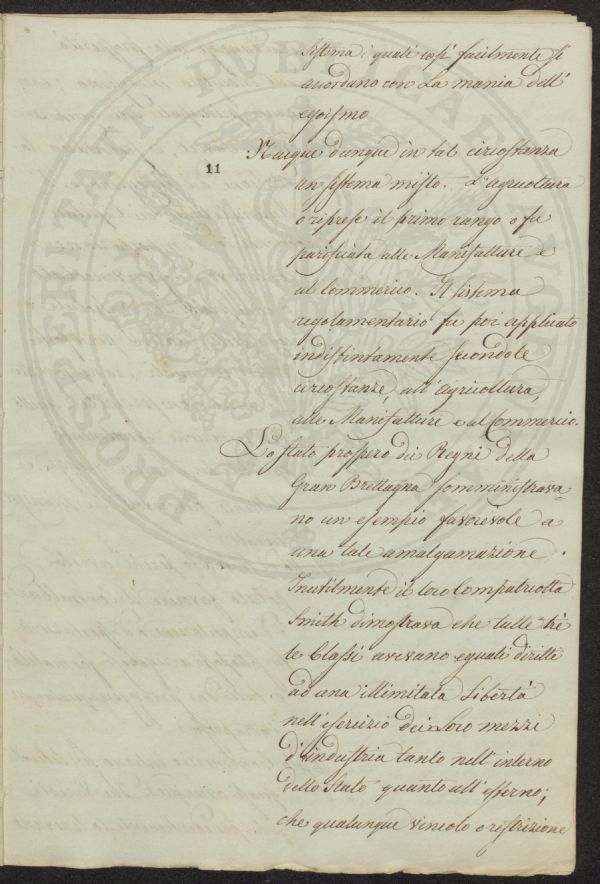 sistema i quali così facilmente si
accordano con la mania dell'
egoismo
Nacque dunque in tal circostanza
11
un sistema misto. L'agricoltura
o riprese il primo rango o fu
parificata alle Manifatture e
al Commercio. Il sistema
regolamentario fu poi applicato
indistintamente secondo le
circostanze, all'agricoltura,
alle Manifatture e al Commercio.
Lo stato prospero dei Regni della
Gran Brettagna somministrava=
no un esempio favorevole a
una tale amalgamazione.
Inutilmente il loro Compatriotta
Smith dimostrava che tutte trè
le Classi avevano eguali diritti
ad una illimitata Libertà
nell'esercizio dei Loro mezzi
d'industria tanto nell'interno
dello Stato quanto all'esterno;
che qualunque vincolo o restrizione
PROSPERITATI PUBLICAE